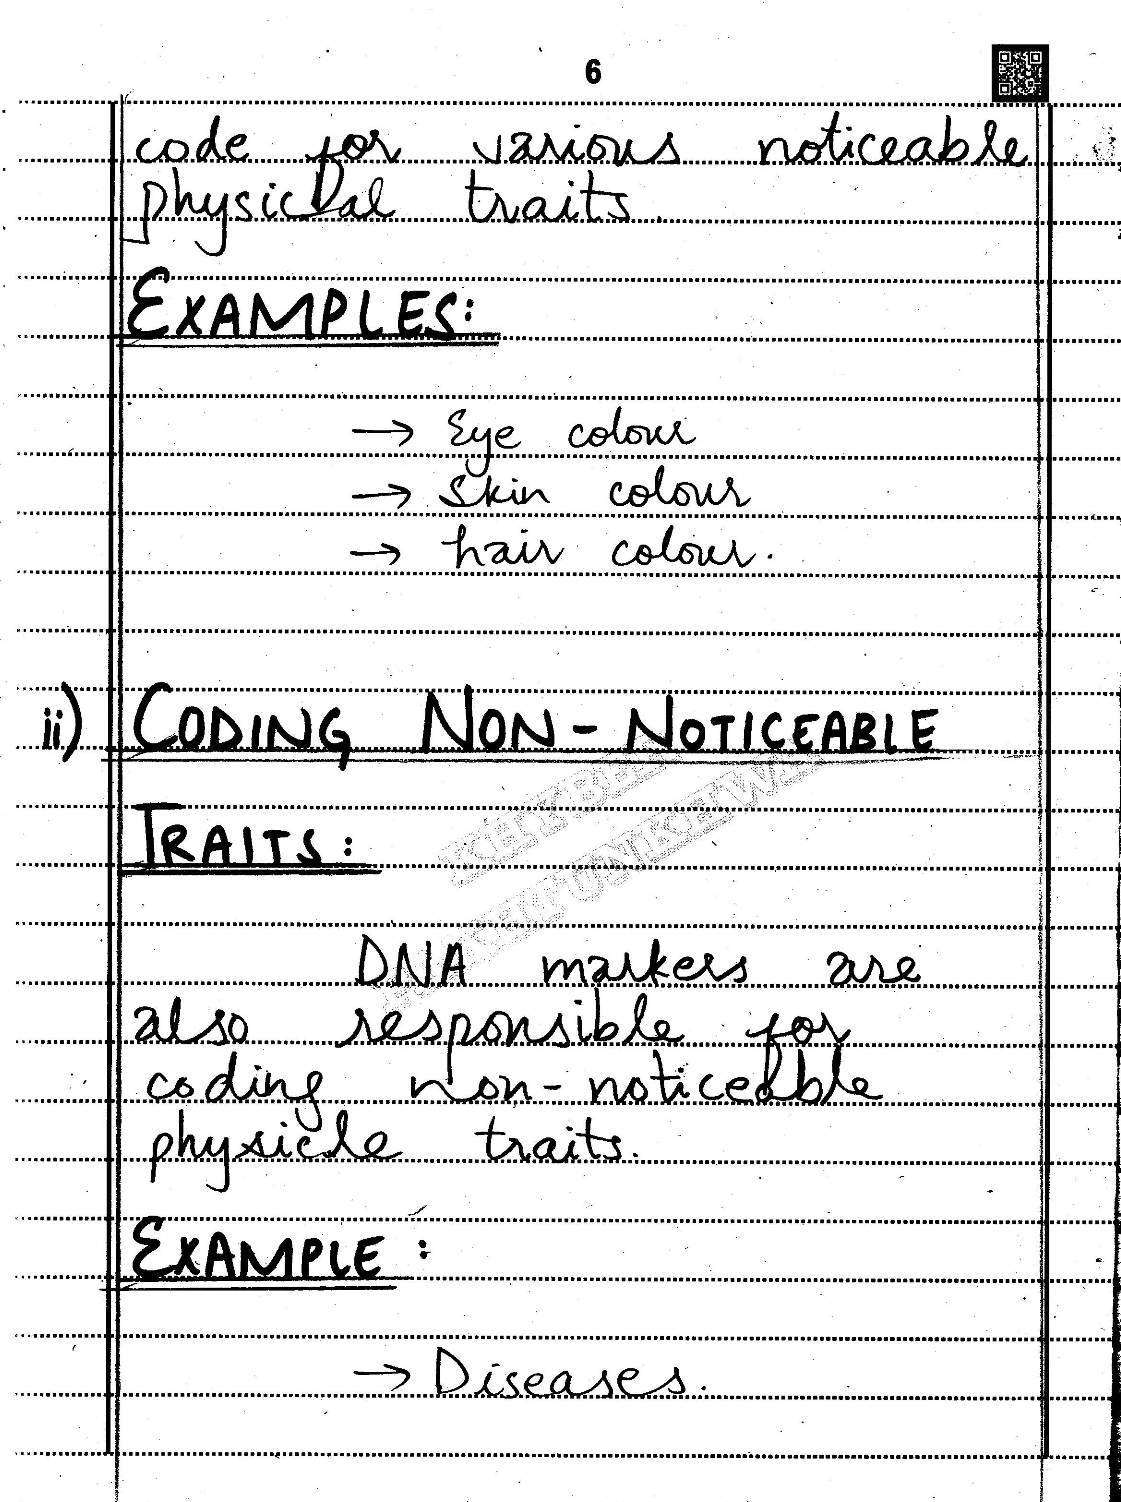 6
code for various noticeable
physical traits.
EXAMPLES:
→ Eye colour
→ Skin colour
→ hair colour.
ii) CODING NON-NOTICEABLE
TRAITS:
DNA markers are
also responsible for
coding non-noticeable
physicle traits.
EXAMPLE:
→ Diseases.
KHYBER
PAKHTUNKHWA